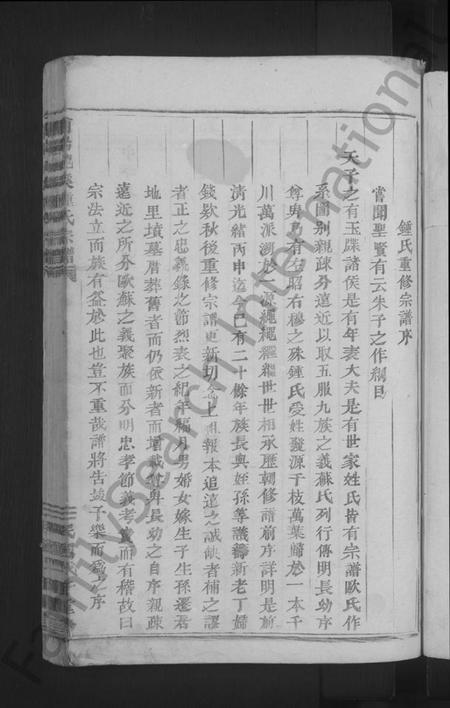 鍾氏重修宗譜序
嘗聞聖賢有云朱子之作綱目
天子之有玉牒諸侯是有年表大夫是有世家姓氏皆有宗譜歐氏作
系圖别親疎分遠近以取五服九族之義蘇氏列行傳明長幼序
尊卑乃有左昭右穆之殊鍾氏受姓發源于枝萬葉歸於一本千
川萬派溯於一源繩繩繼繼世世相承歷朝修譜前序詳明是前
清光緒丙申迄今已有二十餘年族長與姪孫等議籌新老丁歸
錢欵秋後重修宗譜更新切念上祖報本追遠之誠缺者補之謬
者正之忠義錄之節烈表之紀年稽月男婚女嫁生子生孫遷居
地里墳墓厝葬舊者而仍依新者而增載尊卑長幼之自序親疎
遠近之所分歐蘇之義聚族而分明忠孝節義考實而有稽故曰
宗法立而族有益於此也豈不重哉譜將告竣予樂而爲之序
FamilySearch International